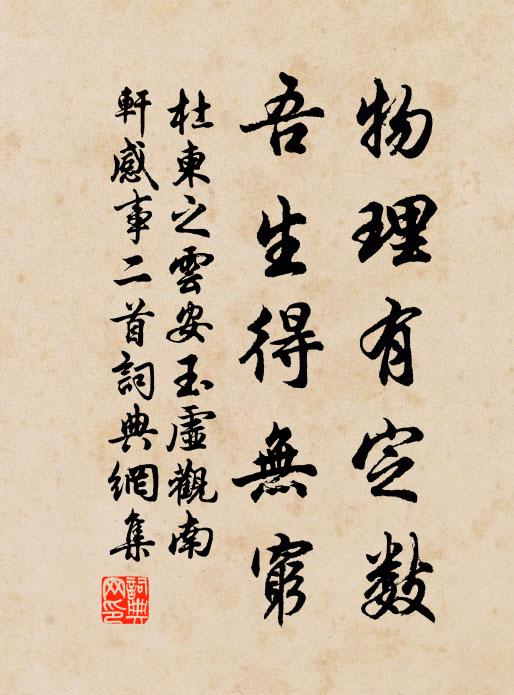 物理有定數
吾生得無窮
杜東之雲安玉虛觀南
軒感事二首詞典網集
詞典
网印